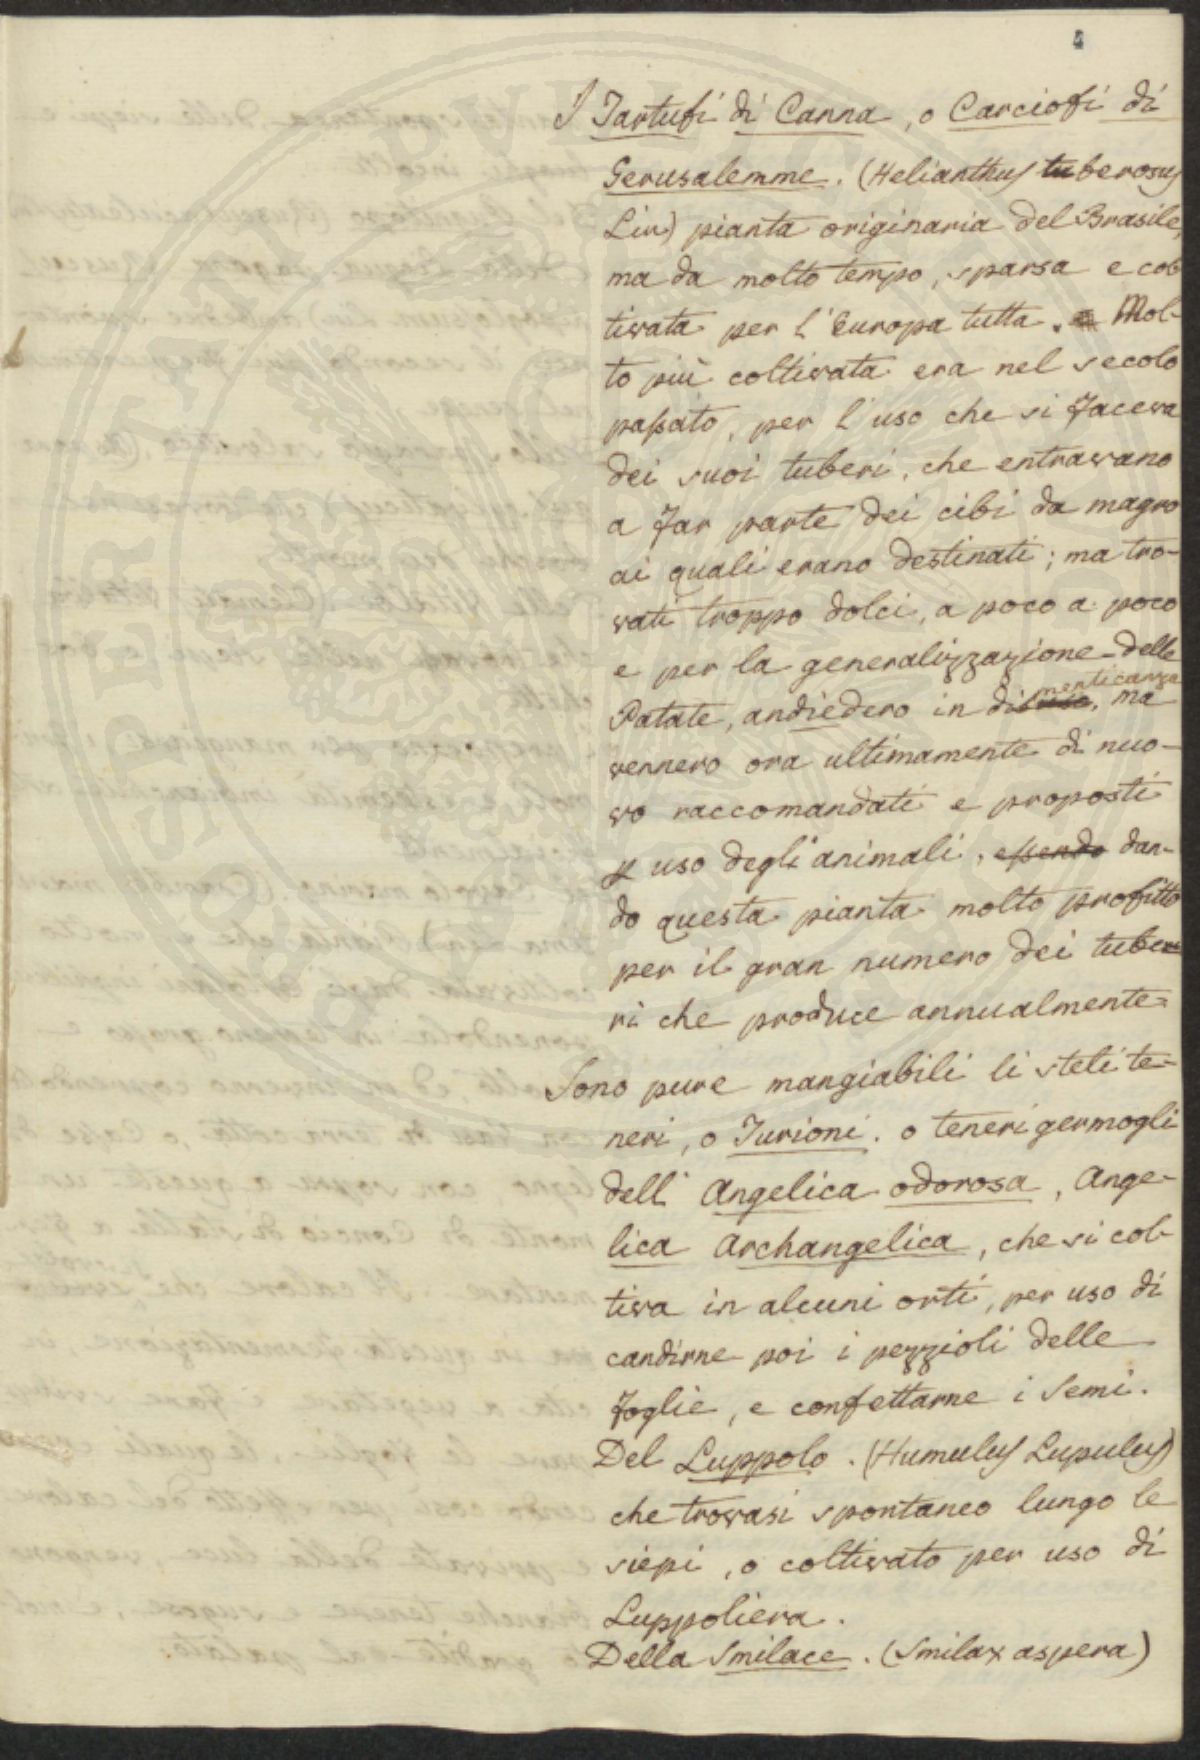 4
I Tartufi di Canna, o Carciofi di
Gerusalemme. (Helianthus tuberosus
Lin) pianta originaria del Brasile,
ma da molto tempo, sparsa e col-
tivata per l'Europa tutta. Mol-
to più coltivata era nel secolo
passato, per l'uso che si faceva
dei suoi tuberi, che entravano
a far parte dei cibi da magro
ai quali erano destinati; ma tro-
vati troppo dolci, a poco a poco
e per la generalizzazione delle
Patate, andiedero in dimenticanza, ma
vennero ora ultimamente di nuo-
vo raccomandati e proposti
p uso degli animali, essendo dan-
do questa pianta molto profitto
per il gran numero dei tube-
ri che produce annualmente=
Sono pure mangiabili li steli te-
neri, o Turioni. o teneri germogli
dell' Angelica odorosa, Ange-
lica Archangelica, che si col-
tiva in alcuni orti, per uso di
candirne poi i pezzioli delle
foglie, e confettarne i Semi.
Del Luppolo. (Humulus Lupulus)
che trovasi spontaneo lungo le
siepi, o coltivato per uso di
Luppoliera.
Della Smilace. (Smilax aspera)